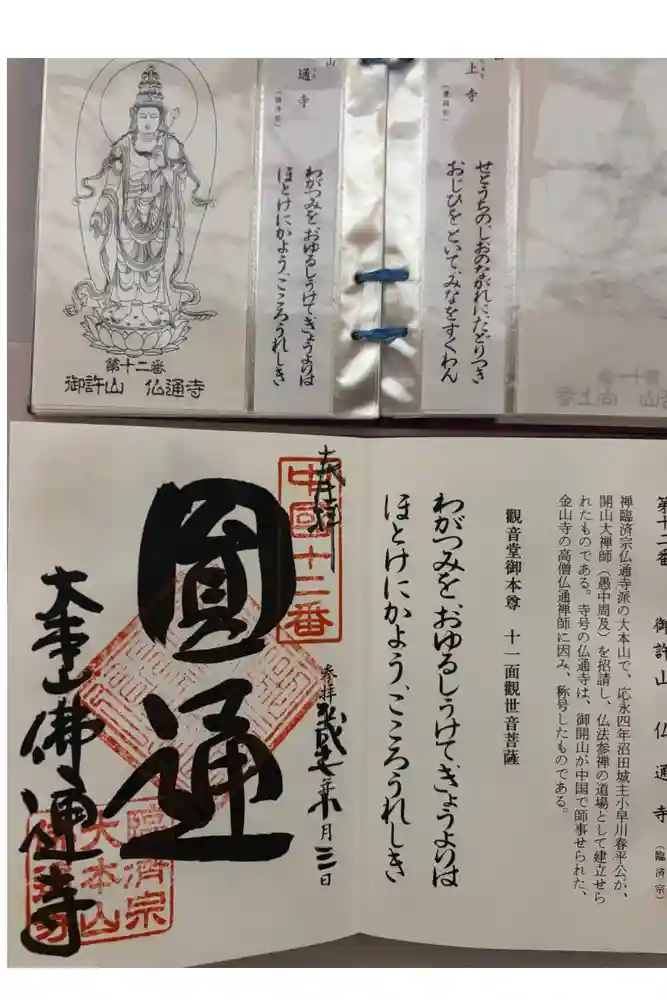 山
上寺
せとうちの、しおのながれに、たどりつき
おじひを、といて、みなをすくわん
山
通寺
わがつみを、おゆるしうけて、きょうよりは
ほとけにかよう、こころうれしき
第十二番
御許山 仏通寺
第十二番 御許山 仏通寺（臨済宗）
禅臨済宗仏通寺派の大本山で、応永四年沼田城主小早川春平公が、
開山大禅師（愚中周及）を招請し、仏法参禅の道場として建立せら
れたものである。寺号の仏通寺は、御開山が中国で師事せられた、
金山寺の高僧仏通禅師に因み、称号したものである。
觀音堂御本尊 十一面觀世音菩薩
わがつみを、おゆるしうけて、きょうよりは
ほとけにかよう、こころうれしき
奉拝
中國十二番
参拝 年 月三日
圓通
佛通寺
臨濟宗
大本山